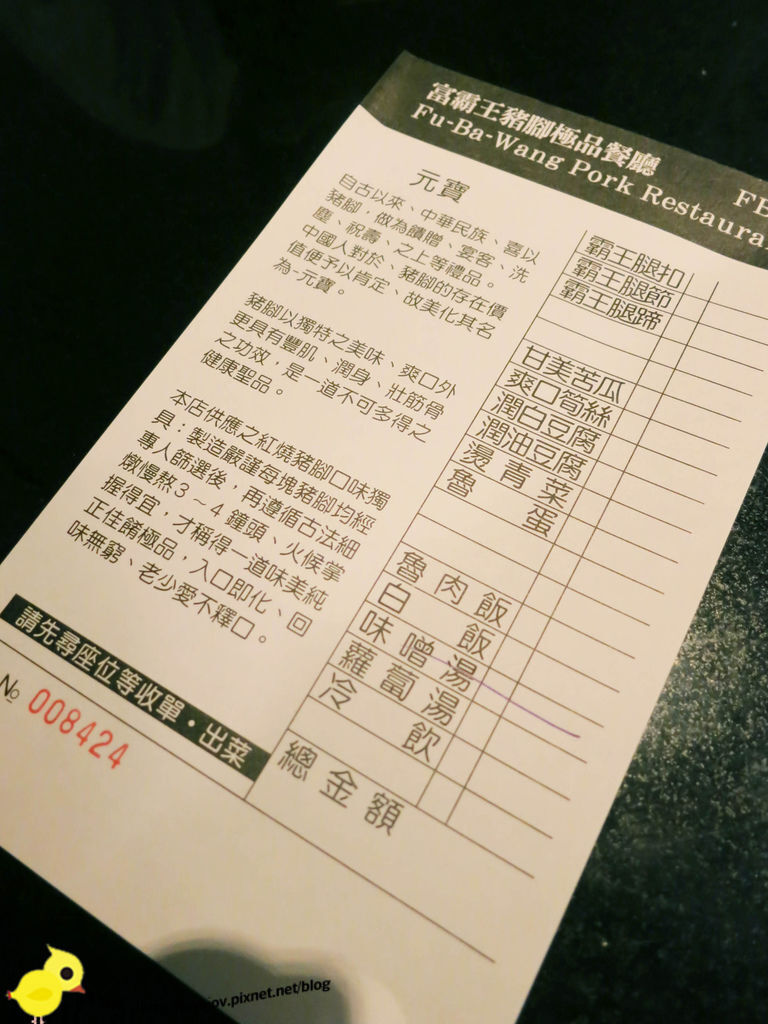 富霸王豬腳極品餐廳
Fu-Ba-Wang Pork Restaura
元寶
自古以來、中華民族、喜以
豬腳，做為饋贈、宴客、洗
塵、祝壽、之上等禮品。
中國人對於、豬腳的存在價
值便予以肯定、故美化其名
為-元寶。
豬腳以獨特之美味、爽口外
更具有豐肌、潤身、壯筋骨
之功效，是一道不可多得之
健康聖品。
本店供應之紅燒豬腳口味獨
具；製造嚴謹每塊豬腳均經
專人篩選後，再遵循古法細
燉慢熬3～4鐘頭、火候掌
握得宜，才稱得一道味美純
正佳餚極品，入口即化、回
味無窮、老少愛不釋口。
請先尋座位等收單·出菜
№ 008424
霸王腿扣
霸王腿節
霸王腿蹄
甘美苦瓜
爽口筍絲
潤白豆腐
潤油豆腐
燙青菜
魯蛋
魯肉飯
白飯
味噌湯
蘿蔔湯
冷飲
總金額
ov.pixnet.net/blog